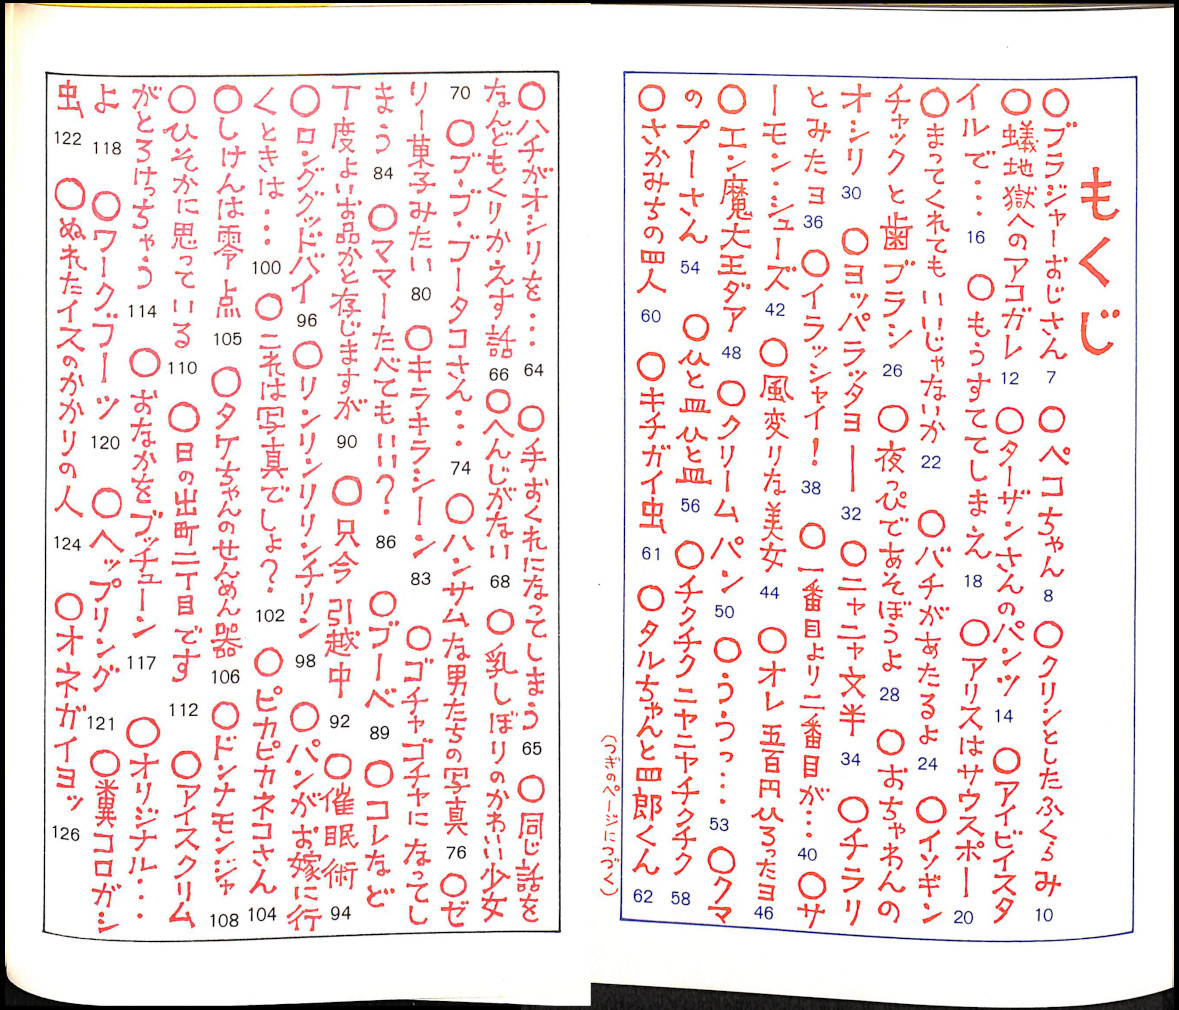 もくじ
○ブラジャーおじさん 7 ○ペコちゃん 8 ○クリンとしたふくらみ 10
○蟻地獄へのアコガレ 12 ○ターザンさんのパンツ 14 ○アイビイスタ
イルで・・・・ 16 ○もうすててしまえ 18 ○アリスはサウスポー 20
○まってくれても いいじゃないか 22 ○バチがあたるよ 24 ○イソギン
チャックと歯ブラシ 26 ○夜っぴであそぼうよ 28 ○おちゃわんの
オシリ 30 ○ヨッパラッタヨー 32 ○ニャニャ文半 34 ○チラリ
とみたヨ 36 ○イラッシャイ! 38 ○一番目より二番目が・・・ 40 ○サ
ーモン・シューズ 42 ○風変りな美女 44 ○オレ五百円ひろったヨ 46
○エン魔大王ダア 48 ○クリームパン 50 ○ううっ・・・ 53 ○クマ
のプーさん 54 ○ひと皿ひと皿 56 ○チクチクニャニャチクチク 58
○さかみちの四人 60 ○キチガイ虫 61 ○タルちゃんと四郎くん 62
(つぎのページにつづく)
○ハチがオシリを・・・ 64 ○手おくれになってしまう 65 ○同じ話を
なんどもくりかえす話 66 ○へんじがない 68 ○乳しぼりのかわいい少女
70 ○ブ・ブ・ブータコさん・・・ 74 ○ハンサムな男たちの写真 76 ○ゼ
リー菓子みたい 80 ○キラキラシーン 83 ○ゴチャゴチャになってし
まう 84 ○ママーたべてもいい?・ 86 ○ブーベ 89 ○コレなど
丁度よいお品かと存じますが 90 ○只今 引越中 92 ○催眠術 94
○ロンググッドバイ 96 ○リンリリンリリンチリン 98 ○パンがお嫁に行
くときは・・・ 100 ○これは写真でしょ?・ 102 ○ピカピカネコさん 104
○しけんは零点 105 ○タケちゃんのせんめん器 106 ○ドンナモンジャ 108
○ひそかに思っている 110 ○日の出町二丁目です 112 ○アイスクリム
がとろけっちゃう 114 ○おなかをブッチューン 117 ○オリジナル・・・
よ 118 ○ワークブーツ 120 ○ヘップリング 121 ○糞コロガシ
虫 122 ○ぬれたイスのかかりの人 124 ○オネガイヨッ 126